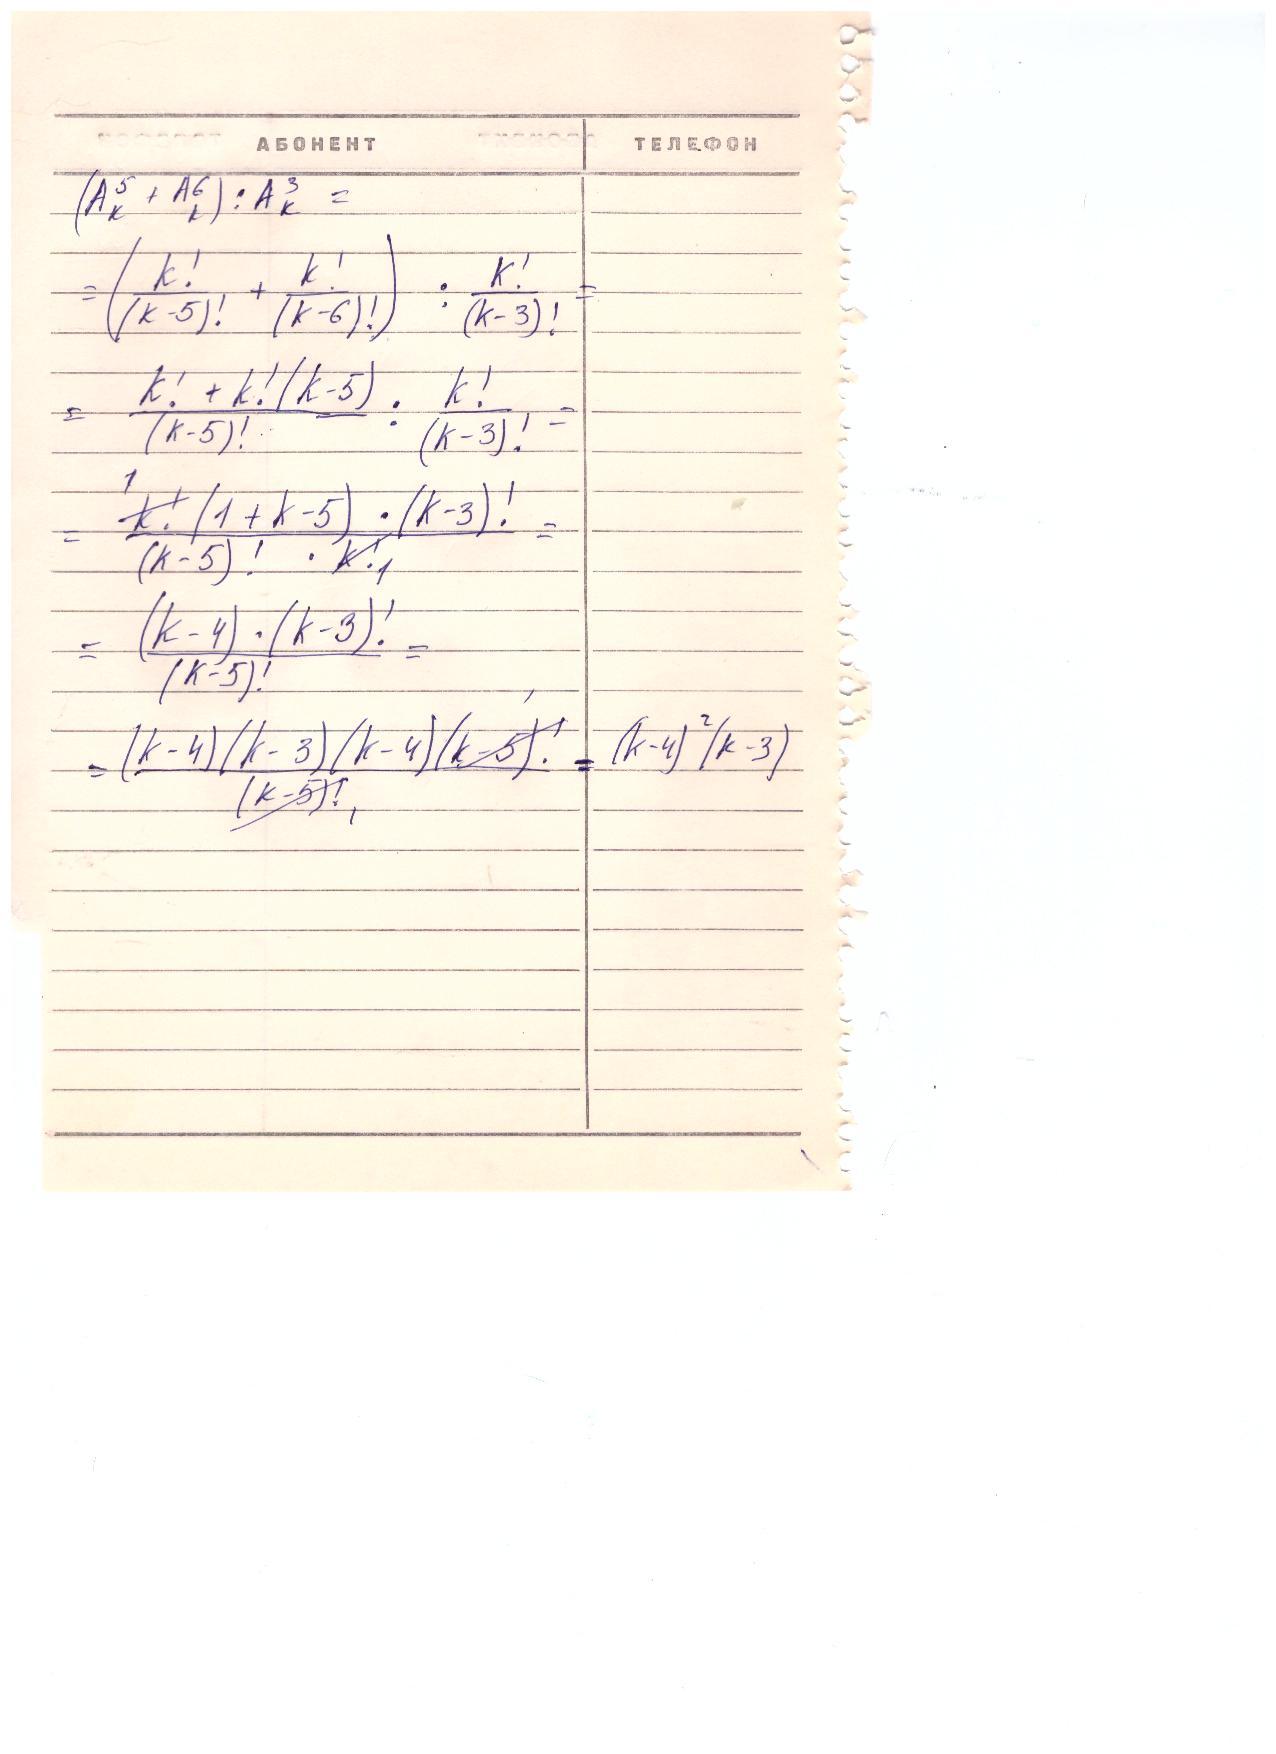 АБОНЕНТ ТЕЛЕФОН
(A_k^5 + A_k^6) : A_k^3 =
= (k!/(k-5)! + k!/(k-6)!) : k!/(k-3)! =
= (k! + k!(k-5))/(k-5)! : k!/(k-3)! =
= (k!(1+k-5) · (k-3)!)/((k-5)! · k!) =
= ((k-4) · (k-3)!)/(k-5)! =
= ((k-4)(k-3)(k-4)(k-5)!)/(k-5)! = (k-4)²(k-3)